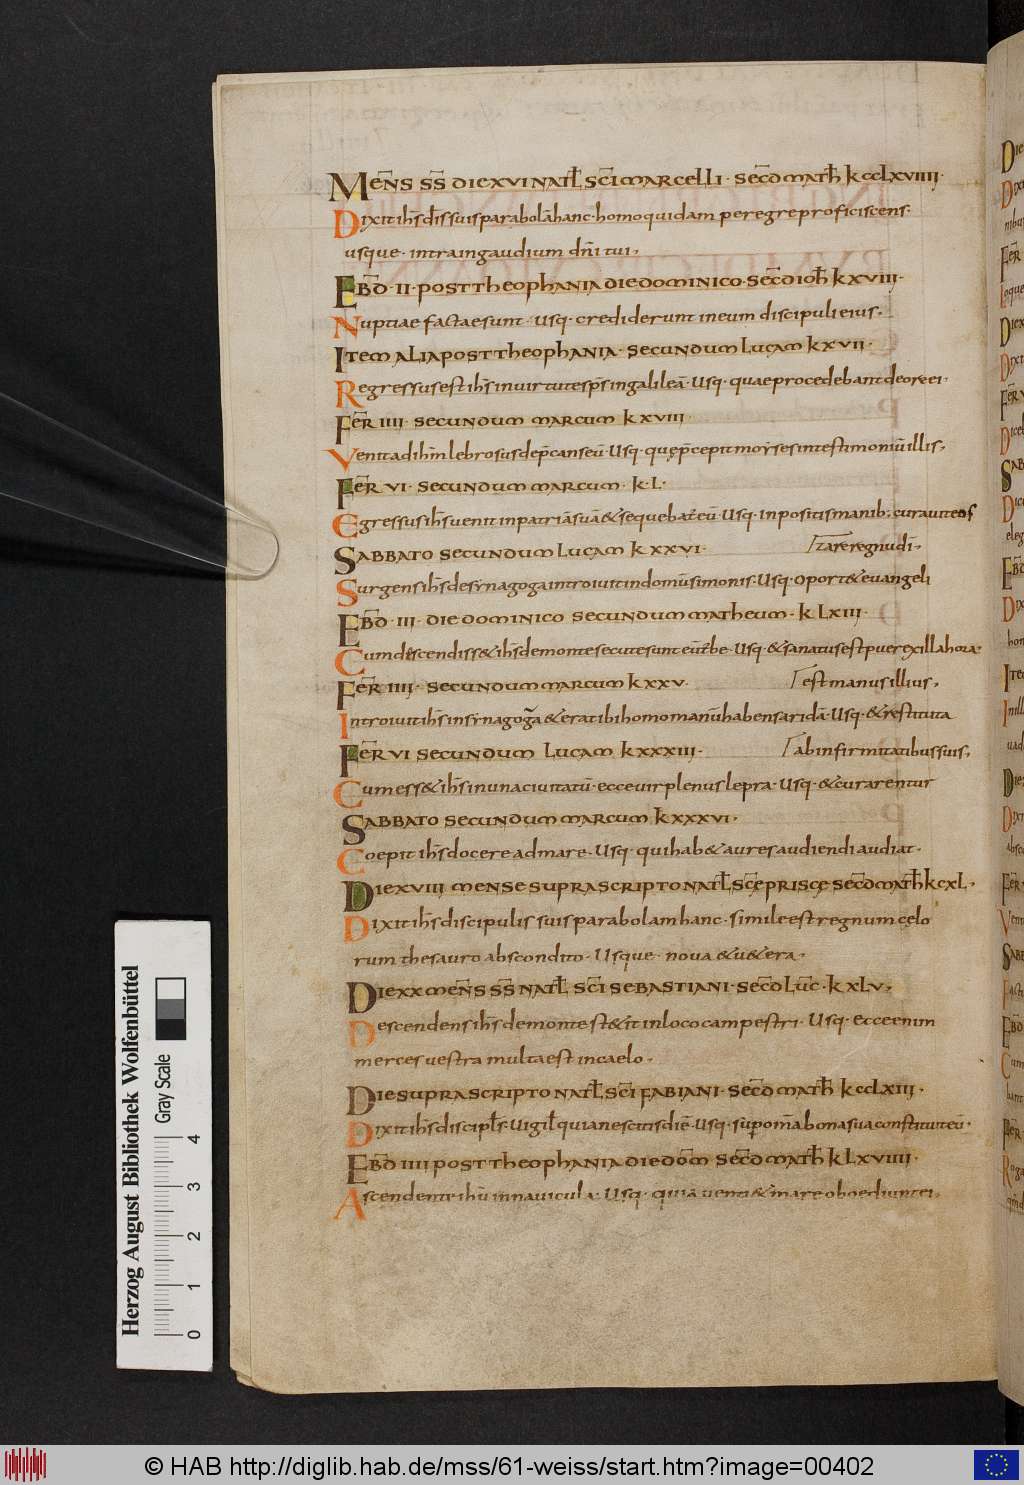 MEN̄S S̄S̄ DIE XVI NATL̄ SC̄I MARCELLI · SEC̄D MATH̄ k CCLXVIIII ·
Dixit ih̄s dis̄ suis parabolā hanc · homo quidam peregre proficiscens ·
usque · intra in gaudium dn̄i tui ,
EB̄D · II · POST THEOPHANIA DIE DOMINICO · SEC̄D IOH̄ k XVIII ·
Nuptiae factae sunt · usq · crediderunt in eum discipuli eius ,
ITEM ALIA POST THEOPHANIA · SECUNDUM LUCAM k XVII ·
Regressus est ih̄s in uirtute sp̄s in galileā · usq · quae procedebant de ore ei ·
FER̄ IIII · SECUNDUM MARCUM k XVIII ·
Venit ad ih̄m lebrosus dep̄cans eū · usq · quę p̄cepit moyses in testimoniū illis ,
FER̄ VI · SECUNDUM MARCUM · k · L ·
Egressus ih̄s uenit in patriā suā & sequebat̄ eū · usq · Inpositis manib; curauit eos
SABBATO SECUNDUM LUCAM k XXVI · tare regnū dī ,
Surgens ih̄s de synagoga introiuit in domū simonis · usq · oport& euangeli
EB̄D · III · DIE DOMINICO SECUNDUM MATHEUM · k LXIII ·
Cum discendiss& ih̄s de monte secute sunt eū tbe · usq · & sanatus est puer ex illa hora ·
FER̄ IIII · SECUNDUM MARCUM k XXV · est manus illius ,
Introiuit ih̄s in synagogā & erat ibi homo manū habens aridā · usq · & restituta
FER̄ VI SECUNDUM LUCAM k XXXIII · ab infirmitatibus suis ,
Cum ess& ih̄s in una ciuitatū · ecce uir plenus lepra · usq · & curarentur
SABBATO SECUNDUM MARCUM k XXXVI ·
Coepit ih̄s docere ad mare · usq · qui hab& aures audiendi audiat ·
DIE XVIII MENSE SUPRASCRIPTO NATL̄ SC̄E PRISCE SEC̄D MATH̄ k CXL ·
Dixit ih̄s discipulis suis parabolam hanc · simile est regnum cęlo
rum thesauro abscondito · Usque · noua & u&era ·
DIE XX MEN̄S S̄S̄ NATL̄ SC̄I SEBASTIANI · SEC̄D LUC̄ · k XLV ,
Descendens ih̄s de monte st&it in loco campestri · usq · ecce enim
merces uestra multa est in caelo ·
DIE SUPRASCRIPTO NATL̄ SC̄I FABIANI · SEC̄D MATH̄ k CCLXIII ·
Dixit ih̄s discipl̄s · Uigil̄ quia nescitis diē · usq · sup̄ om̄a bona sua constituit eū ·
EB̄D IIII POST THEOPHANIA DIE DOM̄ SEC̄D MATH̄ k LXVIIII ·
Ascendente ih̄u in nauicula · usq · quia uenti & mare oboediunt ei ,
Herzog August Bibliothek Wolfenbüttel
Gray Scale
0 1 2 3 4
© HAB http://diglib.hab.de/mss/61-weiss/start.htm?image=00402